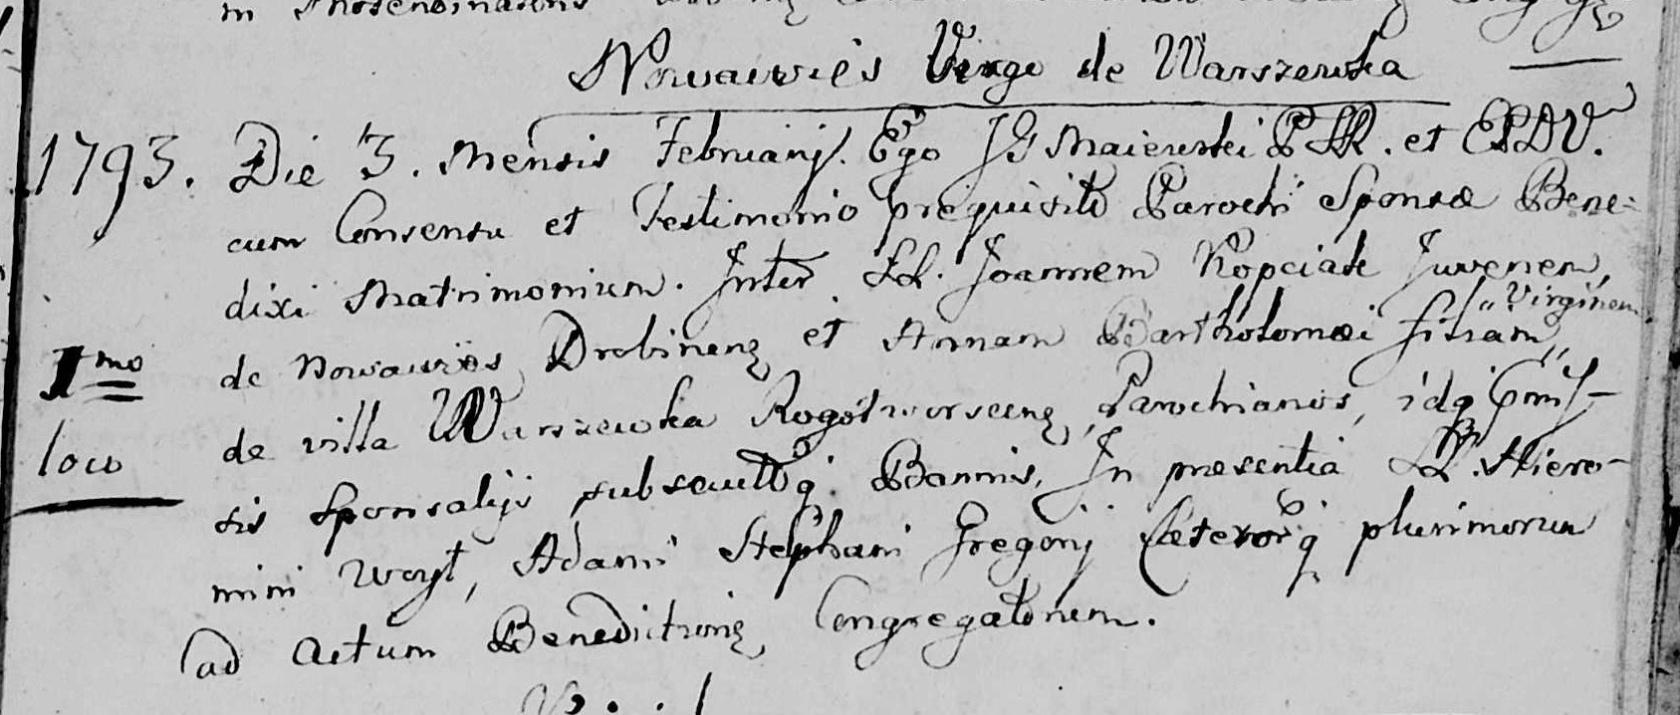 Nowawies Virgo de Warszewka
1793. Die 3. Mensis Februarij. Ego JG Maiewski et
cum Consensu et Testimonio prequisito Parochi Sponsæ Bene-
dixi Matrimonium. Inter LL. Joannem Kopciak Juvenem,
de Nowawies Drobinenz et Annam Bartholomæi filiam, "Virginem
1mo loco
de villa Warszewka Parochianos, idq
sis Sponsalijs Bannis, In presentia LL. Hiero-
mini Woyt, Adami Stephani Gregorij plurimorum
ad actum Benedictionz Congregatorum.